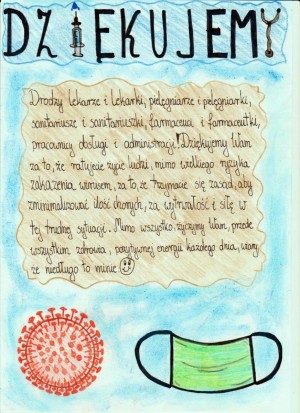 DZIĘKUJEMY
Drodzy lekarze i lekarki, pielęgniarze i pielęgniarki,
sanitariusze i sanitariuszki, farmaceuci i farmaceutki,
pracownicy obsługi i administracji! Dziękujemy Wam
za to, że ratujecie życie ludzi, mimo wielkiego ryzyka
zakażenia wirusem, za to, że trzymacie się zasad, aby
zminimalizować ilość chorych, za wytrwałość i siłę w
tej trudnej sytuacji. Mimo wszystko życzymy Wam, przede
wszystkim zdrowia, pozytywnej energii każdego dnia, wiary,
że niedługo to minie